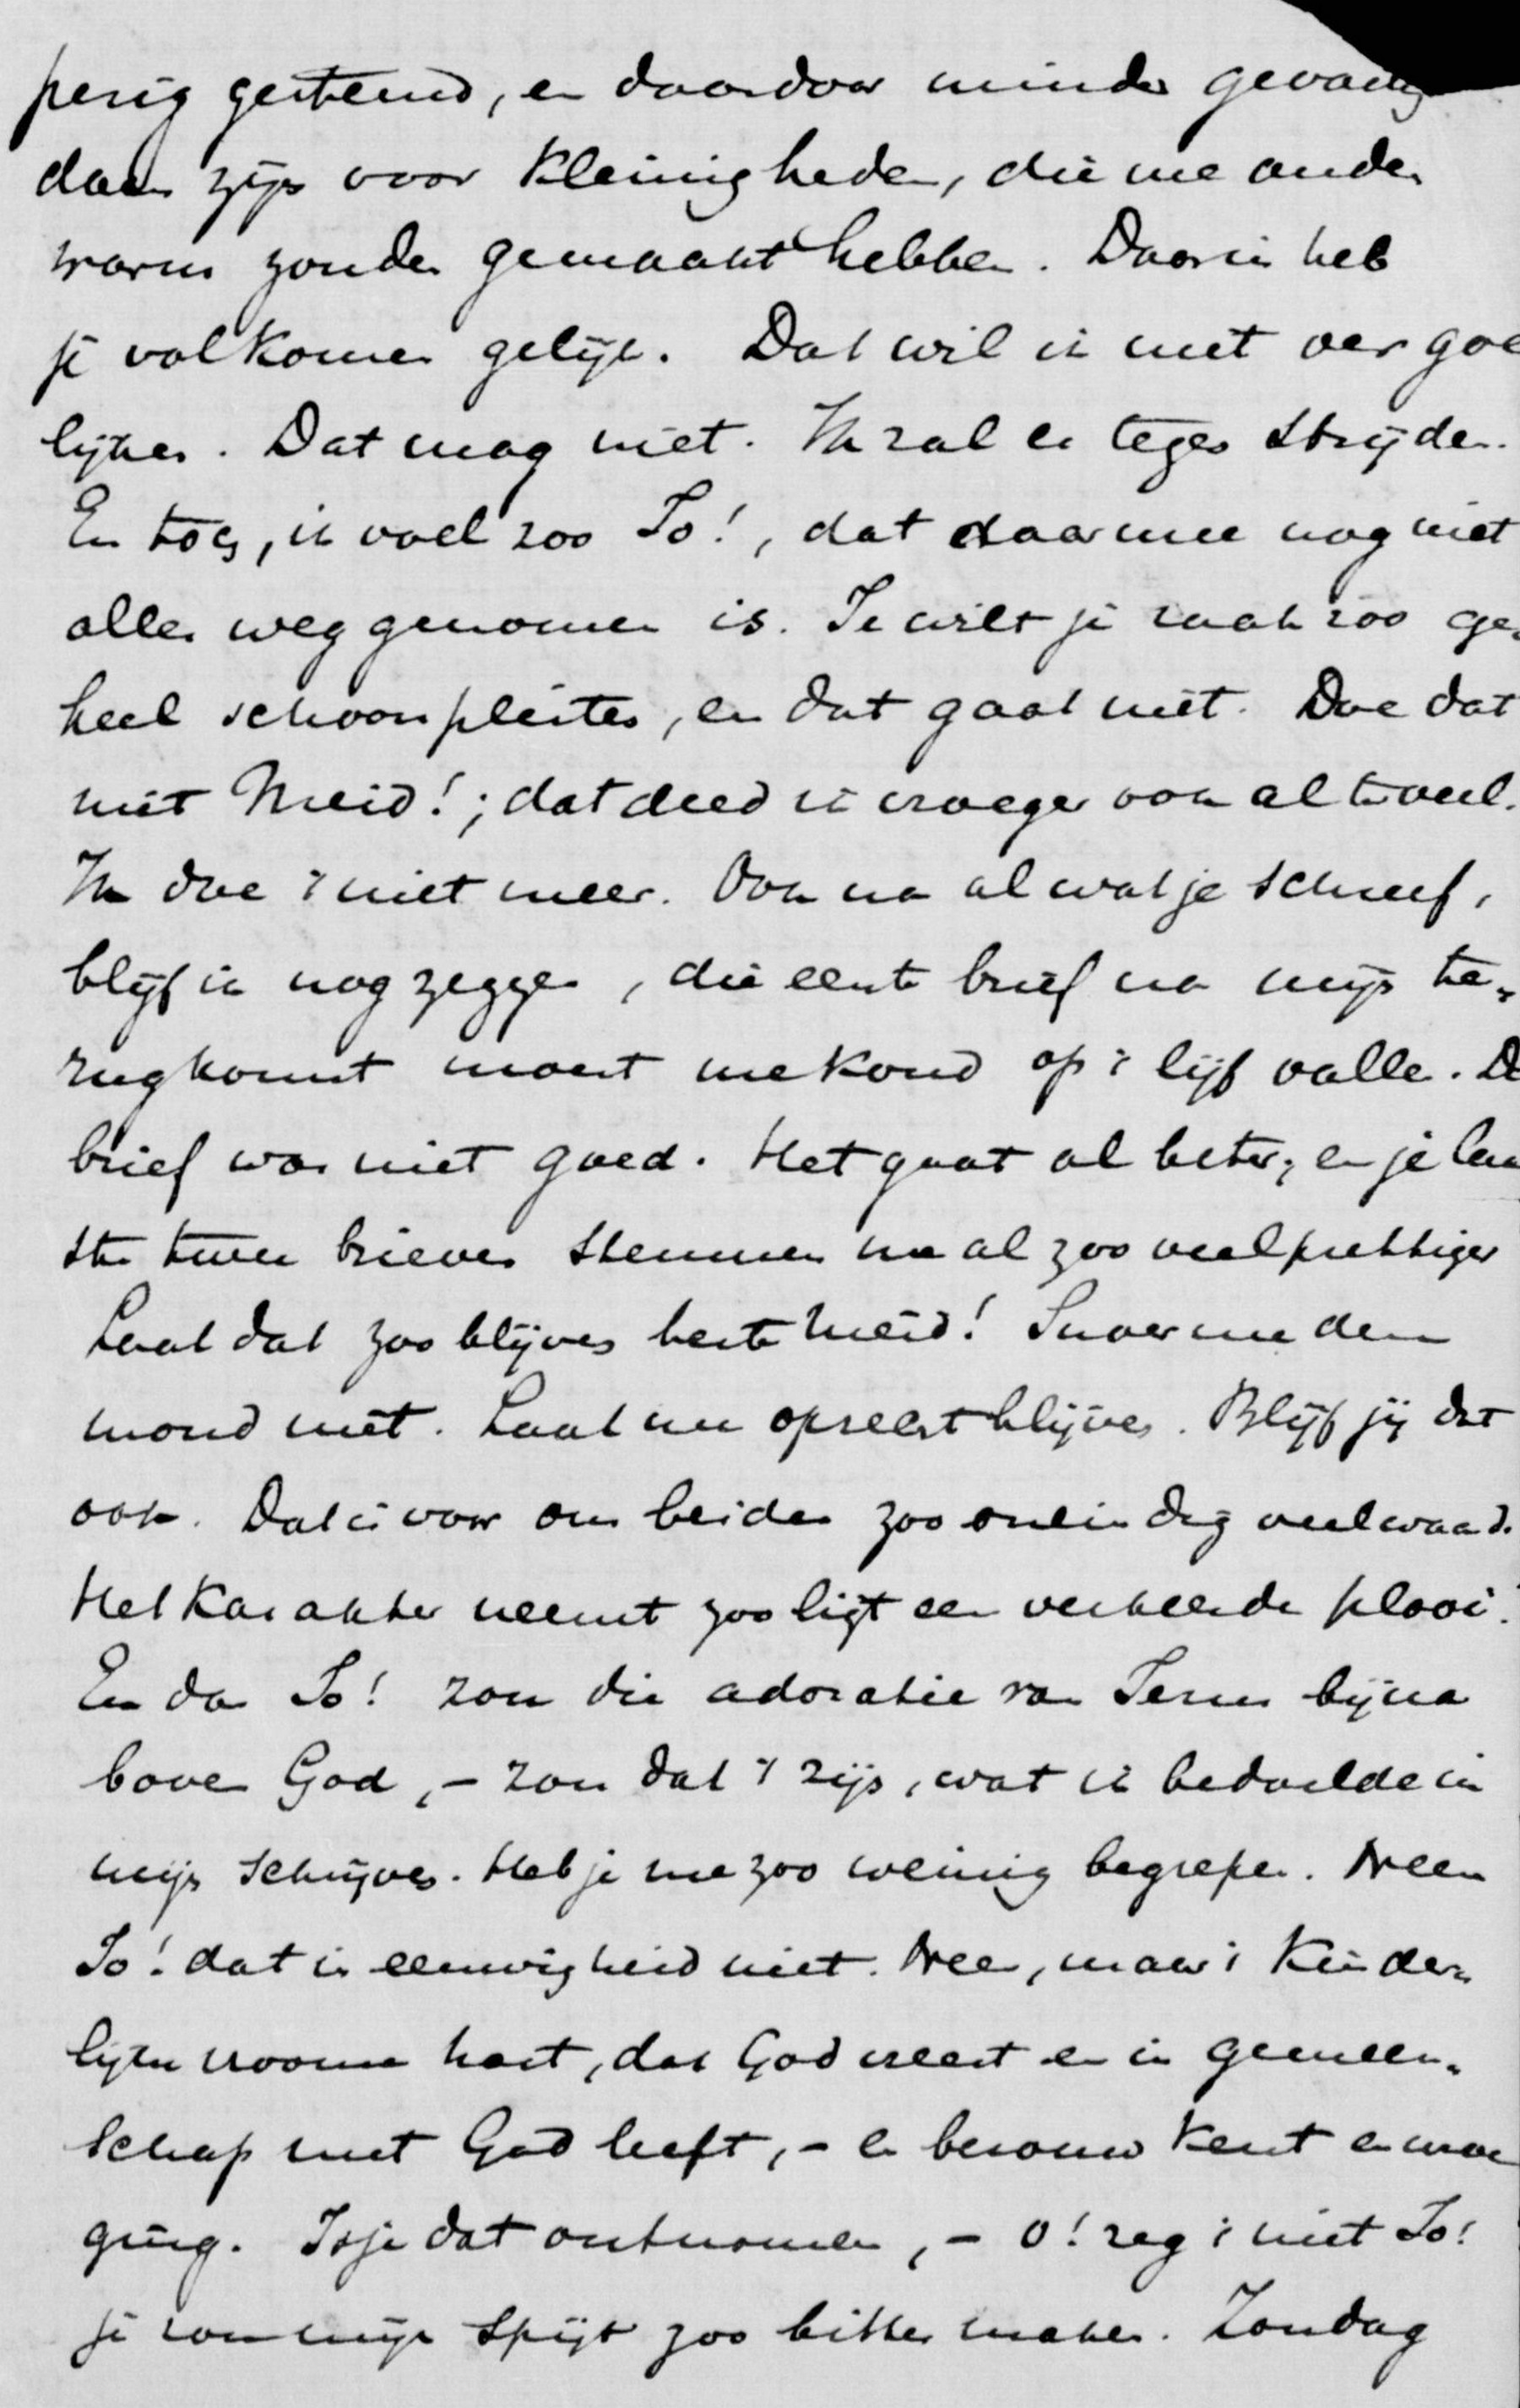 perig gestemd, en daardoor minder gevoelig
daar zijn voor kleinigheden, die me anders
warm zouden gemaakt hebben. Daarin heb
je volkomen gelijk. Dat wil ik niet vergoe
lijken. Dat mag niet. Ik zal er tegen strijden.
En toch, ik voel zoo Jo!, dat daarmee nog niet
alles weggenomen is. Je wilt je zaak zoo ge-
heel schoonpleiten, en dat gaat niet. Doe dat
niet Meid!; dat deed ik vroeger ook al te veel.
Ik doe 't niet meer. Ook na al wat je schreef,
blijf ik nog zeggen, die eerste brief na mijn te-
rugkomst moest me koud op 't lijf vallen. De
brief was niet goed. Het gaat al beter, en je laa
ste twee brieven stemmen me al zoo veel prettiger
Laat dat zoo blijven beste meid! Snoer me den
mond niet. Laat me oprecht blijven. Blijf jij dat
ook. Dat is voor ons beiden zoo oneindig veel waard.
Het karakter neemt zoo ligt een verkeerde plooi.
En dan Jo! zou die adoratie van Jezus bijna
boven God, - zou dat 't zijn, wat ik bedoelde in
mijn schrijven. Heb je me zoo weinig begrepen. Neen
Jo! dat in eeuwigheid niet. Neen, maar 't kinder-
lijke vroome hart, dat God vreest en in gemeen-
schap met God leeft, - en berouw kent en wroe
ging. Is je dat ontnomen, - o! zeg 't niet Jo!
je zou mijn spijt zoo bitter maken. Zondag